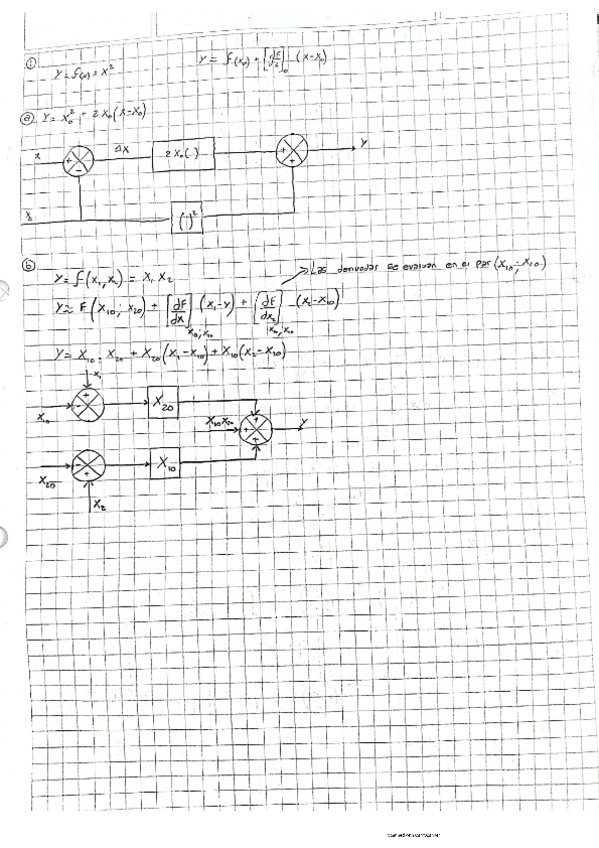 ①
Y = f(x) = x²
Y ≈ f(x₀) + [df/dx]₀ (x-x₀)
ⓐ Y = x₀² + 2x₀(x-x₀)
x + - Δx 2x₀(·) + + Y
(·)²
ⓑ
→ Las derivadas se evaluan en el par (x₁₀; x₂₀)
Y = f(x₁,x₂) = x₁ x₂
Y ≈ F(x₁₀; x₂₀) + [dF/dx] x₁₀;x₂₀ (x₁-x) + [dF/dx₂] x₁₀;x₂₀ (x₂-x₁₀)
Y = x₁₀ . x₂₀ + x₂₀(x₁-x₁₀) + x₁₀(x₂-x₂₀)
x₁
x₁₀ - + x₂₀
x₁₀x₂₀ + + + Y
x₂₀ - + x₁₀
x₂